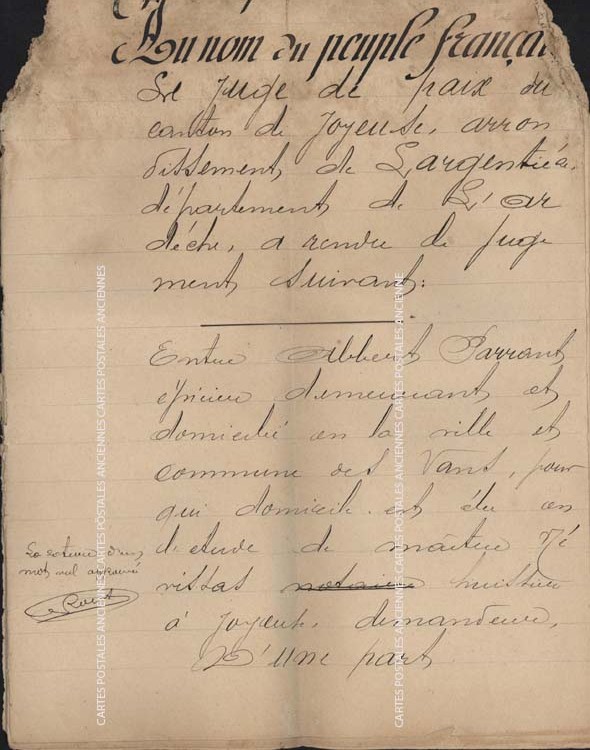 Au nom du peuple françai
Le Juge de paix du
canton de Joyeuse, arron
dissement de Largentière,
département de L'Ar
dèche, a rendu le juge
ment suivant:
Entre Albert Parrant
épicier demeurant et
domicilié en la ville et
commune des Vans, pour
qui domicile est élu en
l'étude de maître
vissas notaire huissier
à Joyeuse, demandeur,
D'une part
La rature d'un
mot nul approuvé
CARTES POSTALES ANCIENNES CARTES POSTALES ANCIENNES CARTES POSTALES ANCIENNES
CARTES POSTALES ANCIENNES CARTES POSTALES ANCIENNES CARTES POSTALES ANCIENNES